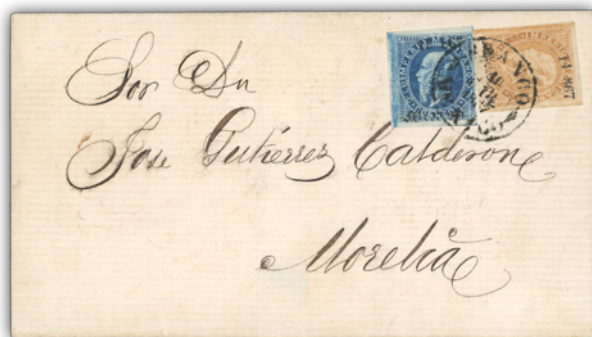 Sor Dn
Jose Gutierrez Calderon
Morelia